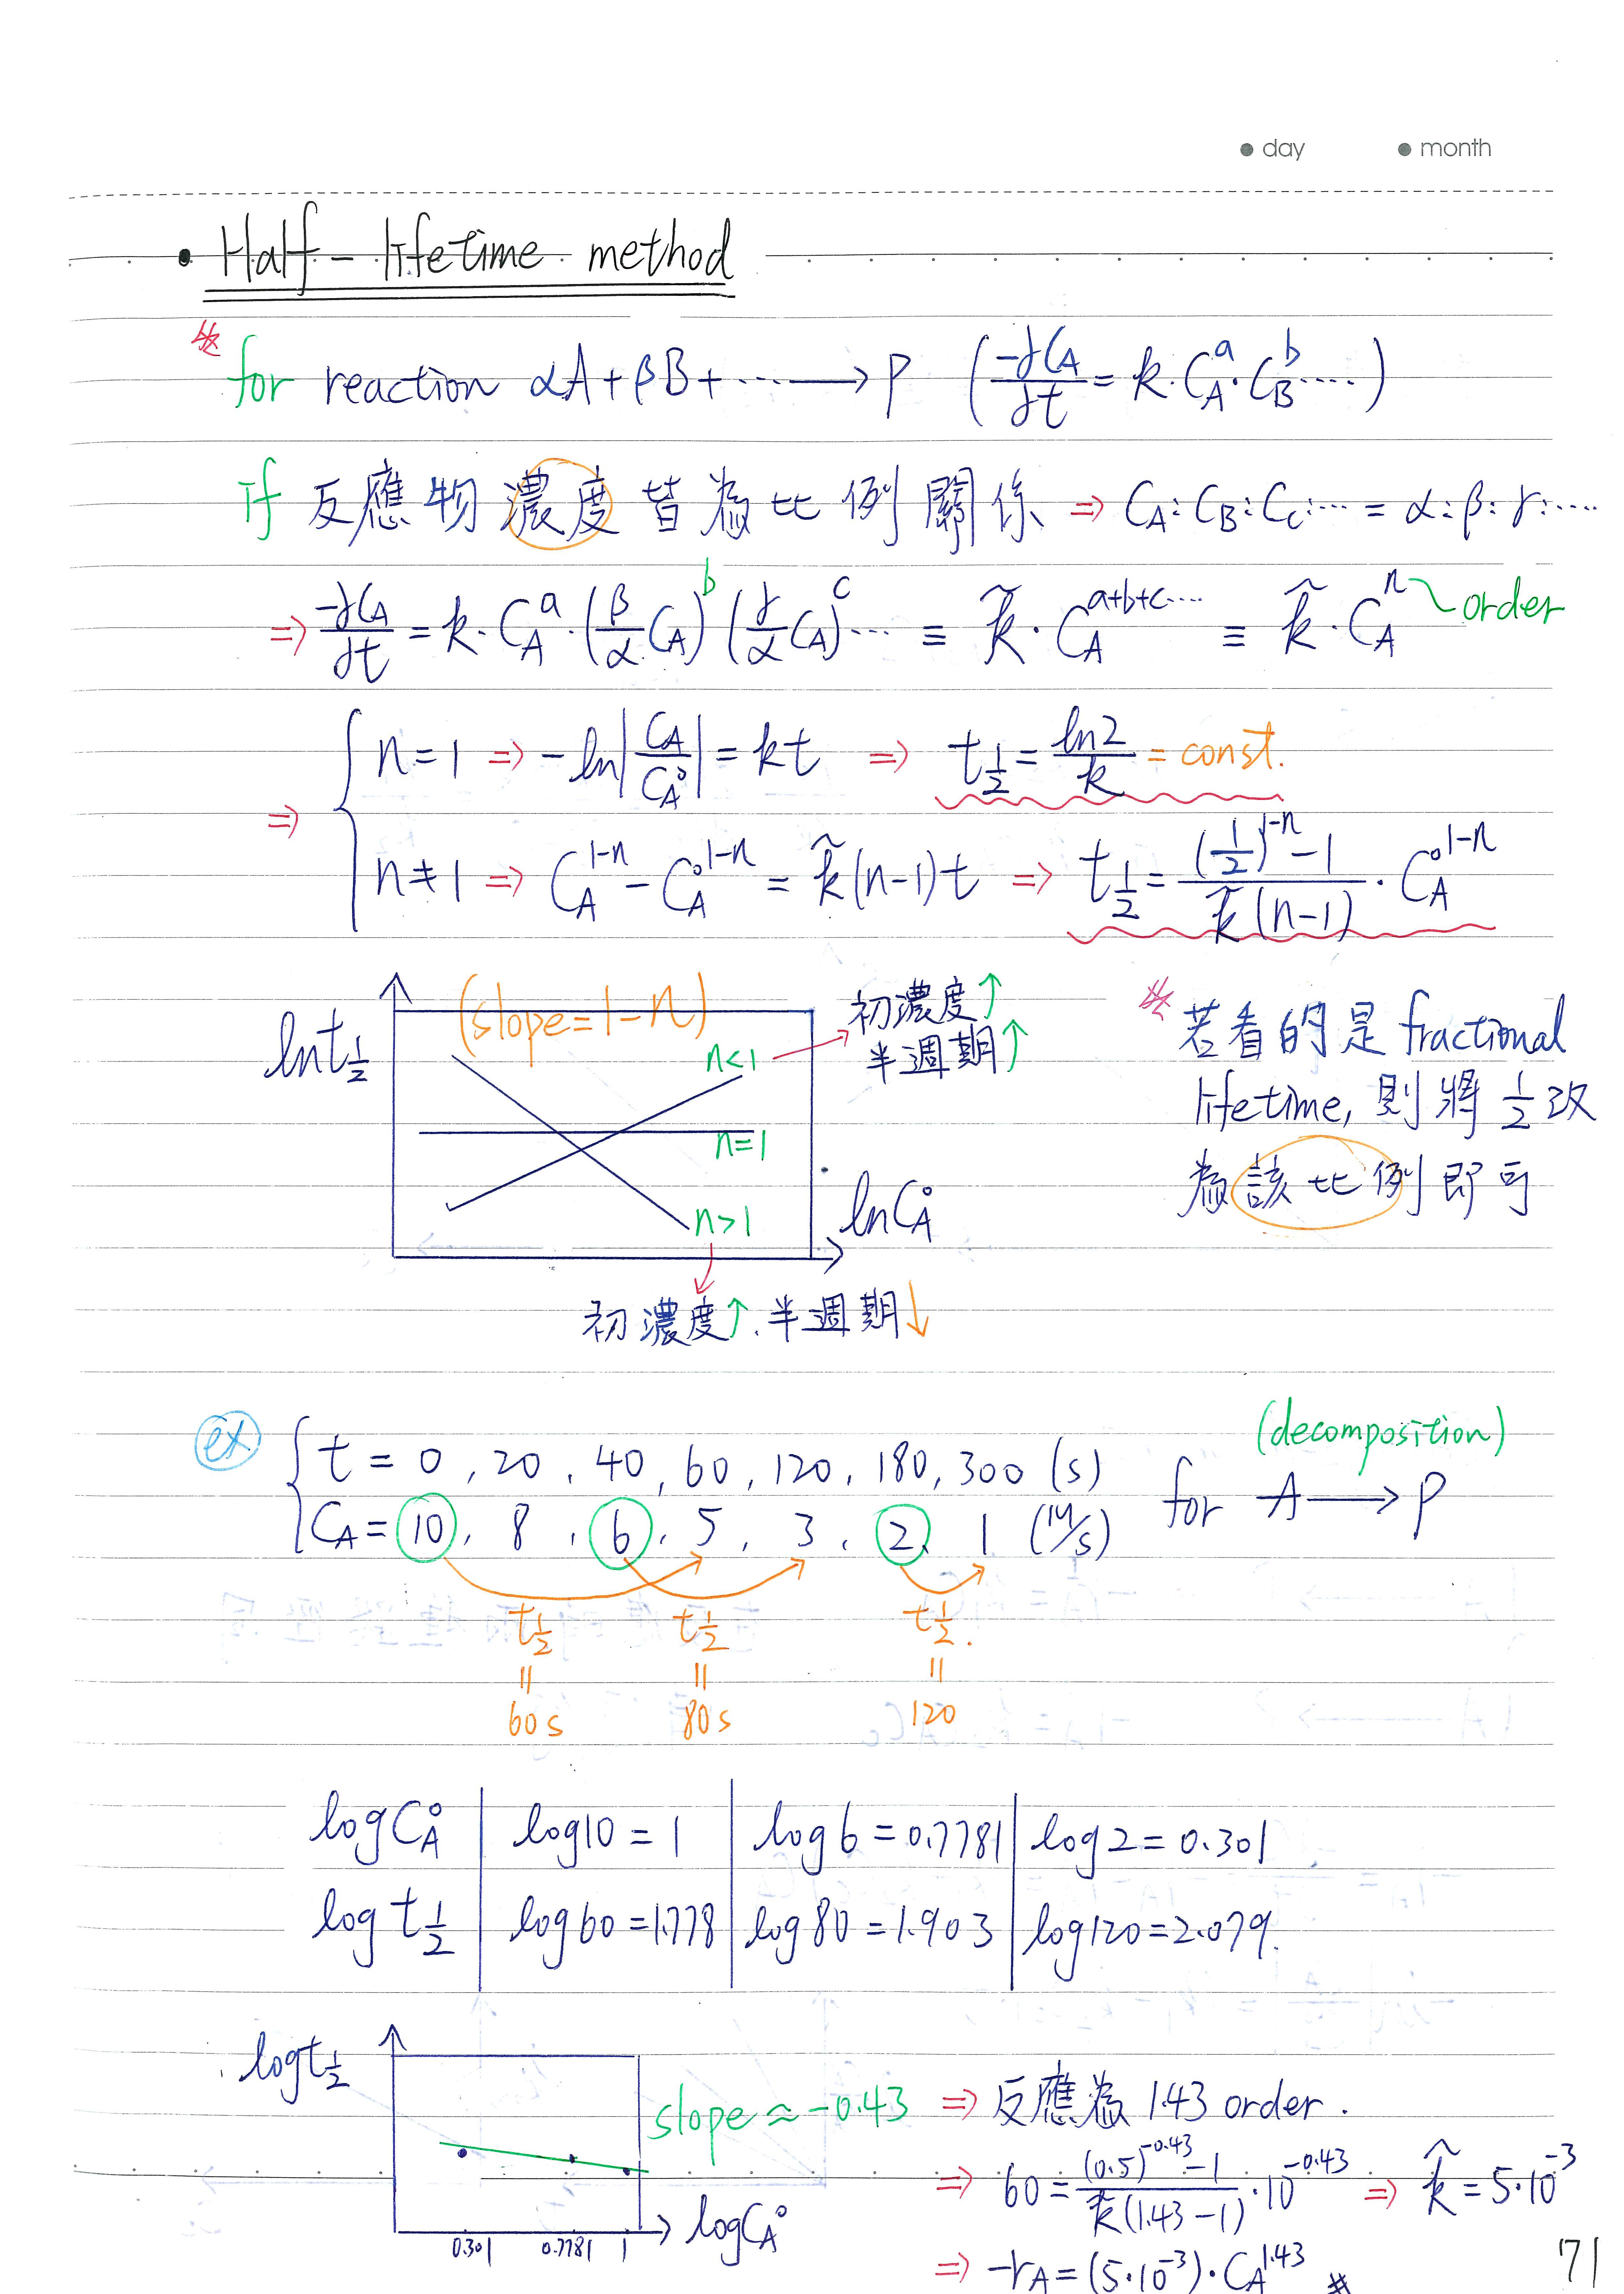 ● day ● month
• Half-lifetime method
※ for reaction αA+βB+⋯⋯⟶P (-dC_A/dt = k·C_A^a·C_B^b⋯⋯)
If 反應物濃度皆為比例關係 ⇒ C_A:C_B:C_C:⋯ = α:β:γ:⋯
⇒ -dC_A/dt = k·C_A^a·(β/α C_A)^b (γ/α C_A)^c⋯ ≡ k̃·C_A^(a+b+c⋯) ≡ k̃·C_A^n order
⇒ { n=1 ⇒ -ln|C_A/C_A°| = kt ⇒ t_1/2 = ln2/k = const.
n≠1 ⇒ C_A^(1-n) - C_A°^(1-n) = k̃(n-1)t ⇒ t_1/2 = ((1/2)^(1-n) -1)/(k̃(n-1)) · C_A°^(1-n)
ln t_1/2
(slope=1-n)
n<1
初濃度↑
半週期↑
n=1
n>1
ln C_A°
初濃度↑.半週期↓
※ 若看的是 fractional
lifetime, 則將 1/2 改
為該比例即可
ex
{ t = 0, 20, 40, 60, 120, 180, 300 (s)
C_A = 10, 8, 6, 5, 3, 2, 1 (M/s)
for A ⟶ P
(decomposition)
t_1/2 = 60s
t_1/2 = 80s
t_1/2 = 120
log C_A° | log10 = 1 | log6 = 0.7781 | log2 = 0.301
log t_1/2 | log60 = 1.778 | log80 = 1.903 | log120 = 2.079
log t_1/2
0.301 0.7781 1
log C_A°
slope ≈ -0.43 ⇒ 反應為 1.43 order.
⇒ 60 = ((0.5)^(-0.43) -1)/(k̃(1.43-1)) · 10^(-0.43) ⇒ k̃ = 5·10^(-3)
⇒ -r_A = (5·10^(-3))·C_A^1.43 #
71